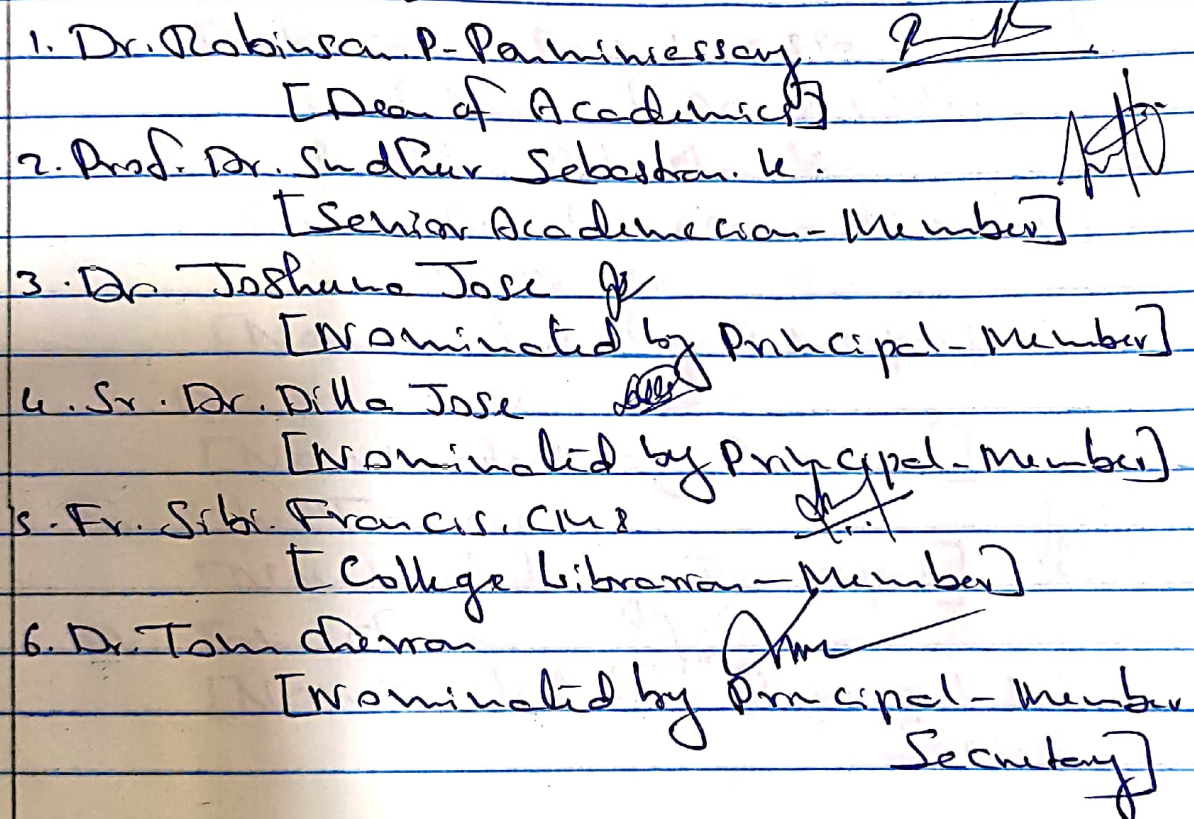 1. Dr. Robinson. P- Ponniniessary
[Dean of Academics]
2. Prof. Dr. Sudhur Sebastian. K.
[Senior Academecian - Member]
3. Dr Joshuna Jose
[Nominated by Principal - Member]
4. Sr. Dr. Dilla Jose
[Nominated by Principal - Member]
5. Fr. Sibi. Francis. CM8
[College Librarian - Member]
6. Dr. Tom Cherran
[Nominated by Principal - Member
Secretary]